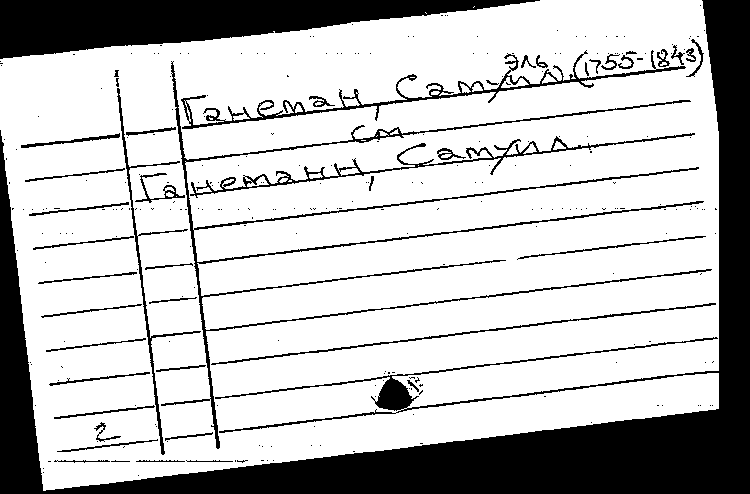 Ганеман, Самуэль (1755-1843)
см
Ганеманн, Самуил.
2